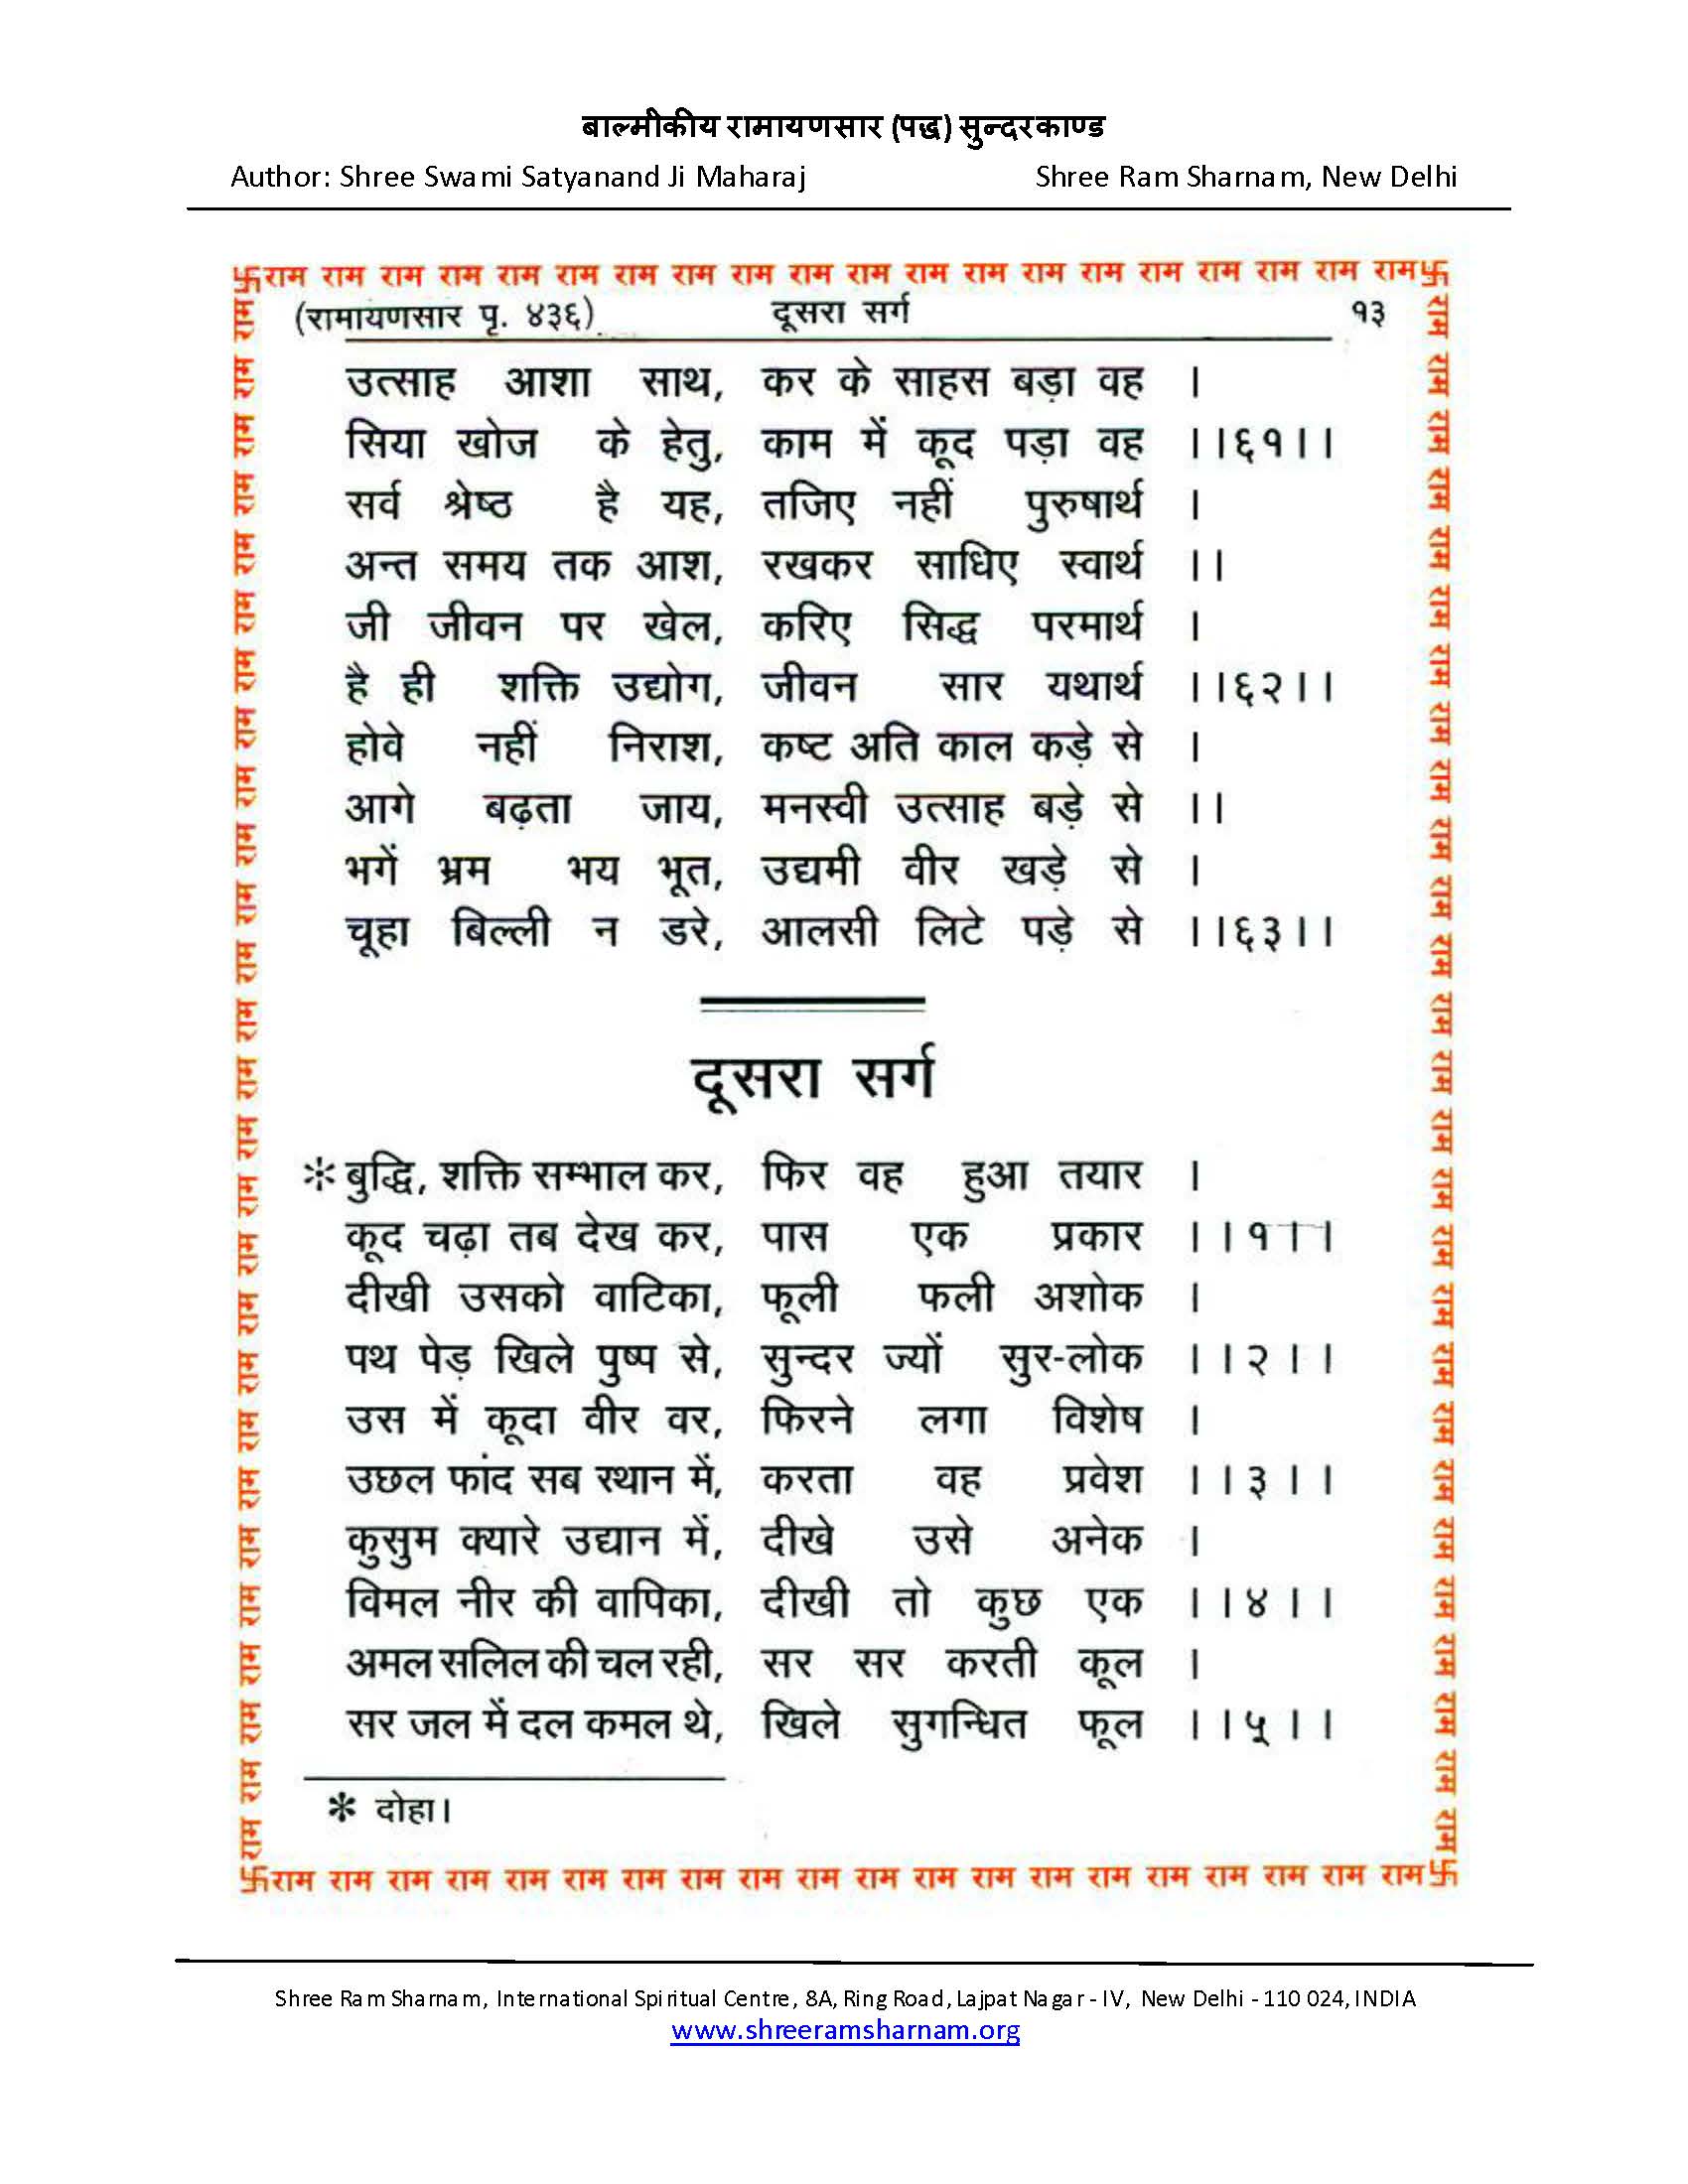 बाल्मीकीय रामायणसार (पद्ध) सुन्दरकाण्ड
Author: Shree Swami Satyanand Ji Maharaj Shree Ram Sharnam, New Delhi
卐राम राम राम राम राम राम राम राम राम राम राम राम राम राम राम राम राम राम राम राम卐
(रामायणसार पृ. ४३६) दूसरा सर्ग १३
उत्साह आशा साथ, कर के साहस बड़ा वह ।
सिया खोज के हेतु, काम में कूद पड़ा वह ।।६१।।
सर्व श्रेष्ठ है यह, तजिए नहीं पुरुषार्थ ।
अन्त समय तक आश, रखकर साधिए स्वार्थ ।।
जी जीवन पर खेल, करिए सिद्ध परमार्थ ।
है ही शक्ति उद्योग, जीवन सार यथार्थ ।।६२।।
होवे नहीं निराश, कष्ट अति काल कड़े से ।
आगे बढ़ता जाय, मनस्वी उत्साह बड़े से ।।
भगें भ्रम भय भूत, उद्यमी वीर खड़े से ।
चूहा बिल्ली न डरे, आलसी लिटे पड़े से ।।६३।।
दूसरा सर्ग
* बुद्धि, शक्ति सम्भाल कर, फिर वह हुआ तयार ।
कूद चढ़ा तब देख कर, पास एक प्रकार ।।१।।
दीखी उसको वाटिका, फूली फली अशोक ।
पथ पेड़ खिले पुष्प से, सुन्दर ज्यों सुर-लोक ।।२।।
उस में कूदा वीर वर, फिरने लगा विशेष ।
उछल फांद सब स्थान में, करता वह प्रवेश ।।३।।
कुसुम क्यारे उद्यान में, दीखे उसे अनेक ।
विमल नीर की वापिका, दीखी तो कुछ एक ।।४।।
अमल सलिल की चल रही, सर सर करती कूल ।
सर जल में दल कमल थे, खिले सुगन्धित फूल ।।५।।
* दोहा।
卐राम राम राम राम राम राम राम राम राम राम राम राम राम राम राम राम राम राम राम राम卐
Shree Ram Sharnam, International Spiritual Centre, 8A, Ring Road, Lajpat Nagar - IV, New Delhi - 110 024, INDIA
www.shreeramsharnam.org